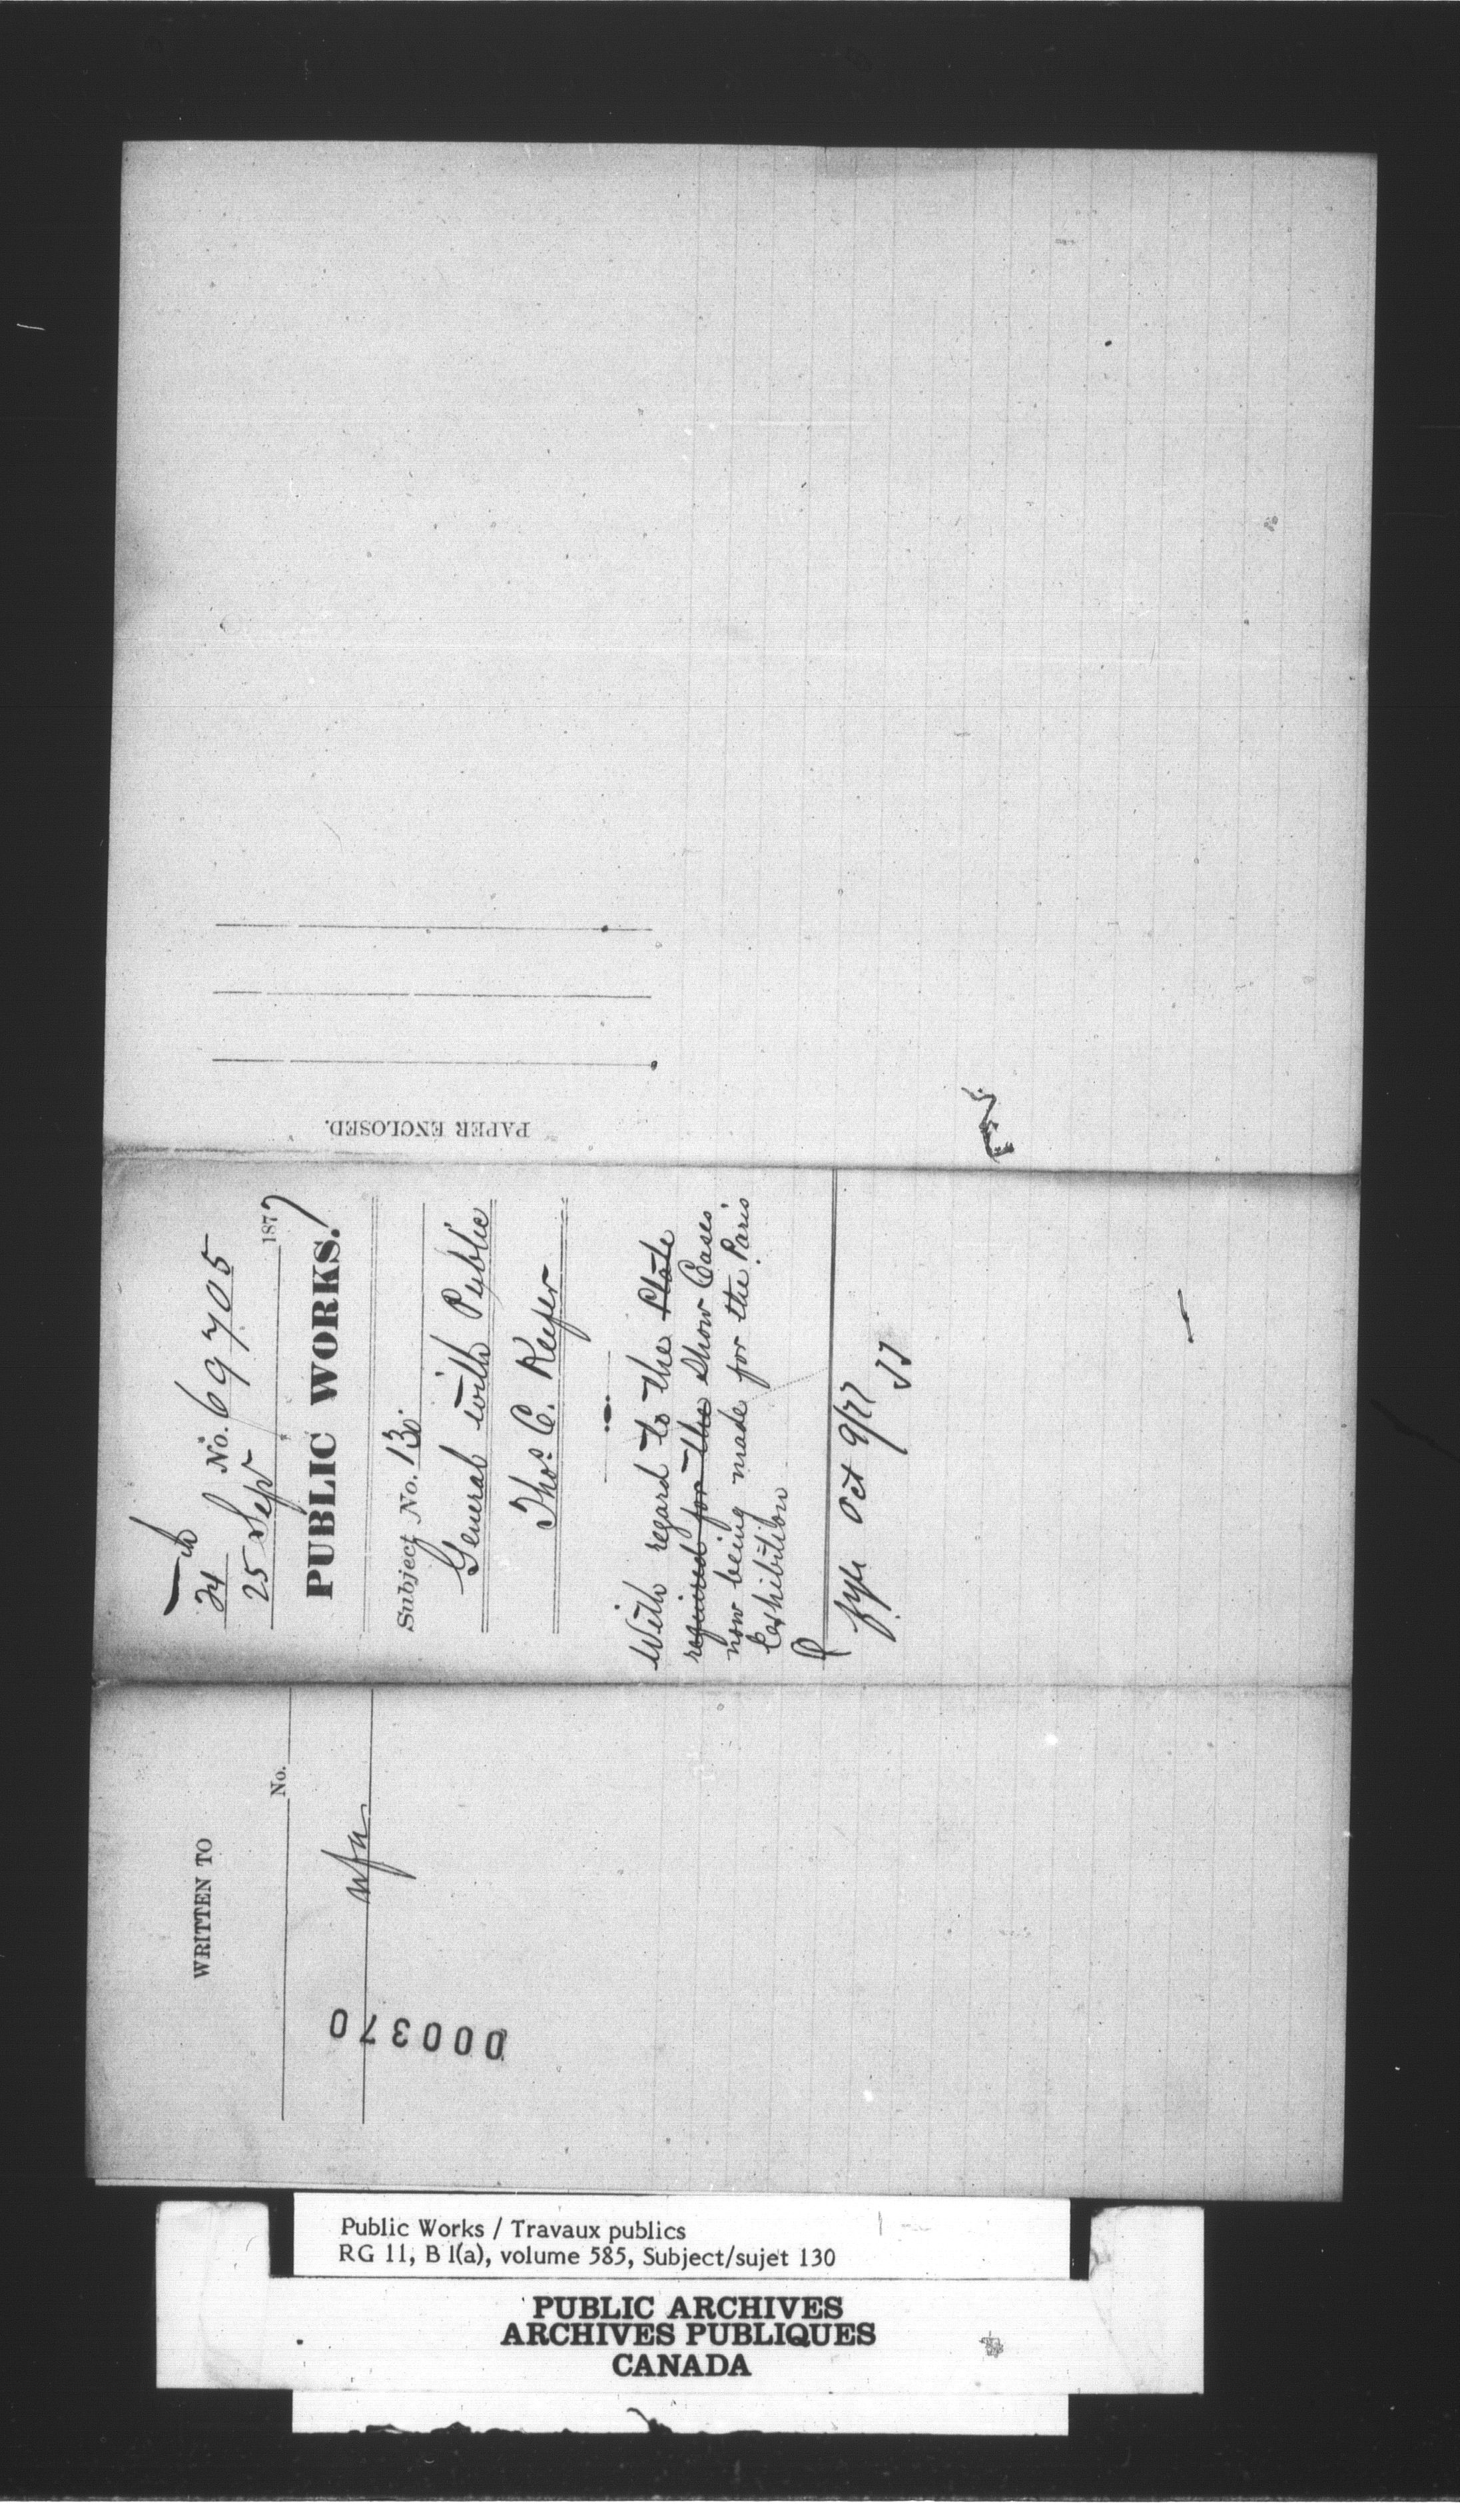 24 No. 69705
25 Sept 1877
PUBLIC WORKS.
Subject No. 130
General with Public
Thos C. Keefer
With regard to the Plate
required for the Show Cases
now being made for the Paris
Exhibition
fyle Oct 9/77
PAPER ENCLOSED.
WRITTEN TO
No.
nfa
000370
Public Works / Travaux publics
RG 11, B 1(a), volume 585, Subject/sujet 130
PUBLIC ARCHIVES
ARCHIVES PUBLIQUES
CANADA